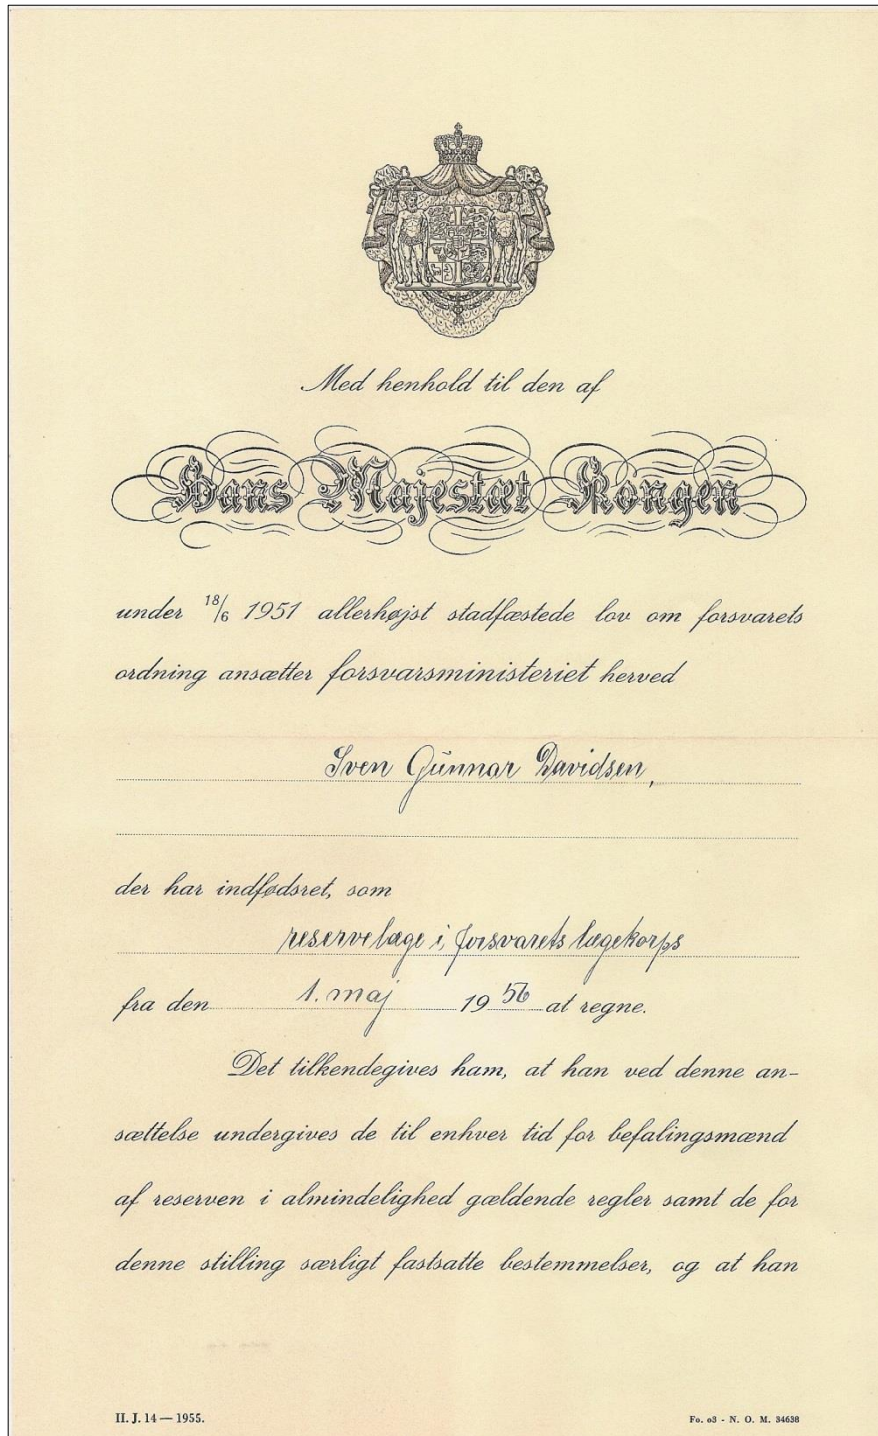 Med henhold til den af
Hans Majestæt Kongen
under 18/6 1951 allerhøjst stadfæstede lov om forsvarets
ordning ansætter forsvarsministeriet herved
Sven Gunnar Davidsen,
der har indfødsret, som
reservelæge i forsvarets lægekorps
fra den 1. maj 1956 at regne.
Det tilkendegives ham, at han ved denne an-
sættelse undergives de til enhver tid for befalingsmænd
af reserven i almindelighed gældende regler samt de for
denne stilling særligt fastsatte bestemmelser, og at han
II. J. 14 — 1955.
Fo. o3 - N. O. M. 34638